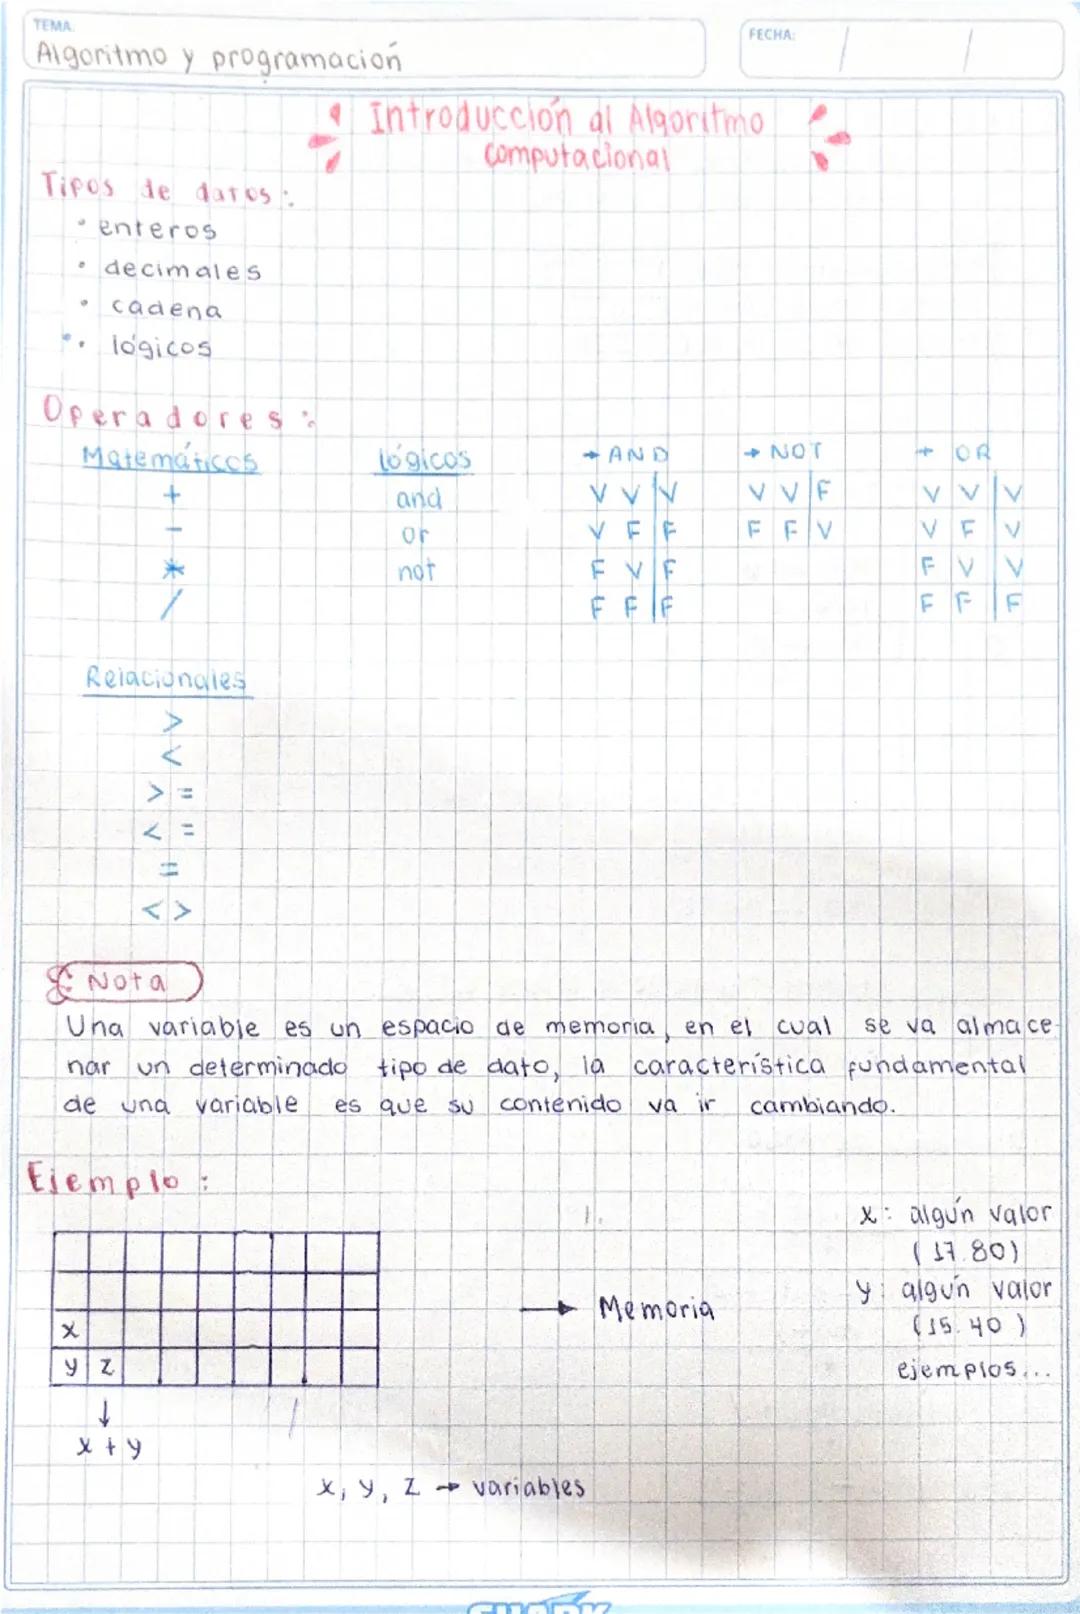 TEMA:
Algoritmo y programación
FECHA:
Introducción al Algoritmo
computacional
Tipos de datos:
• enteros
• decimales
• cadena
• lógicos
Operadores:
Matemáticos
+
-
*
/
lógicos
and
or
not
→ AND
V V V
V F F
F V F
F F F
→ NOT
V V F
F F V
→ OR
V V V
V F V
F V V
F F F
Relacionales
>
<
> =
< =
=
< >
Nota
Una variable es un espacio de memoria, en el cual se va almace-
nar un determinado tipo de dato, la característica fundamental
de una variable es que su contenido va ir cambiando.
Ejemplo:
x
y z
↓
x + y
→ Memoria
x: algún valor
(17.80)
y: algún valor
(15.40)
ejemplos...
x, y, z → variables